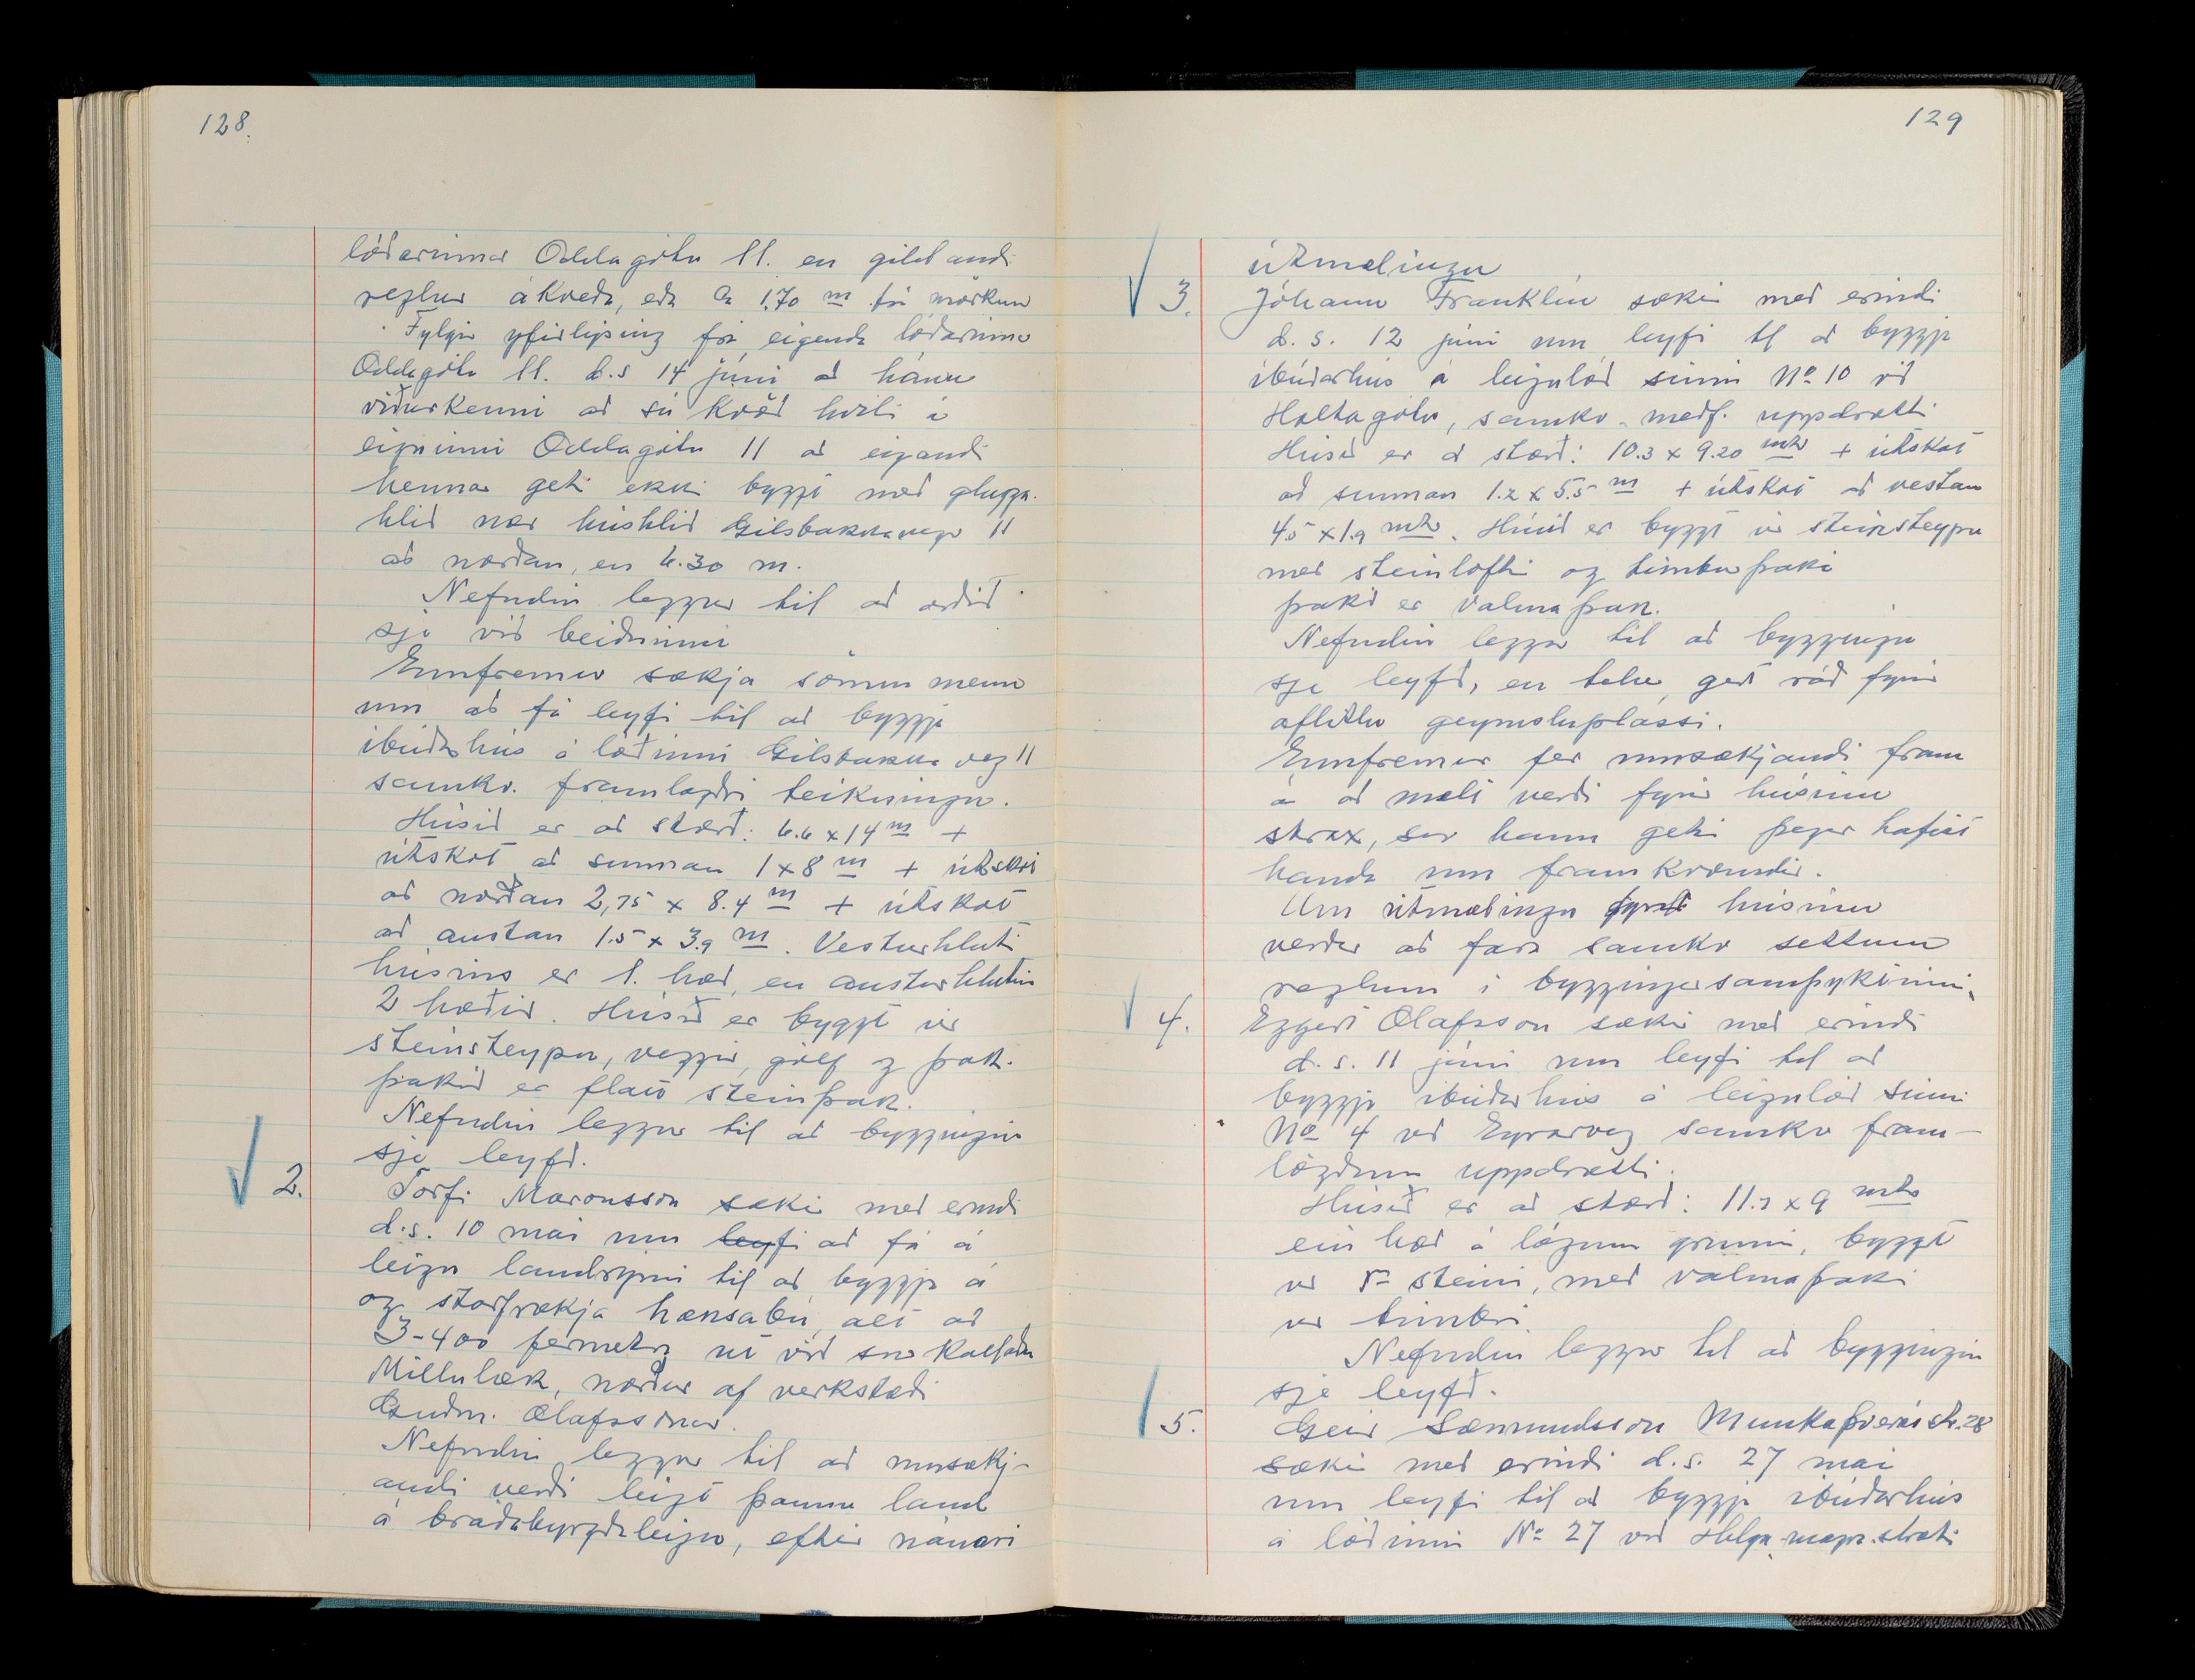 128.
lóðarinnar Oddagötu 11. en gildandi
reglur ákveða, eða ca 1.70 m frá mörkum
Fylgir yfirlýsing frá eiganda lóðarinnar
Oddagötu 11. d.s 14 júní að hann
viðurkenni að sú kvöð hvíli á
eigninni Oddagötu 11 að eigandi
hennar geti ekki byggt með glugga-
hlið nær húshlið Gilsbakkavegs 11
að norðan, en 6.30 m.
Nefndin leggur til að orðið
sje við beiðninni
Ennfremur sækja sömu menn
um að fá leyfi til að byggja
íbúðarhús á lóðinni Gilsbakkaveg 11
samkv. framlagðri teikningu.
Húsið er að stærð: 6.6 x 14 m +
útskot að sunnan 1 x 8 m + útskot
að norðan 2,75 x 8.4 m + útskot
að austan 1.5 x 3.9 m. Vesturhluti
hússins er 1. hæð, en austurhlutin
2 hæðir. Húsið er byggt úr
steinsteypu, veggir, gólf og þak.
þakið er flatt steinþak.
Nefndin leggur til að byggingin
sje leyfð.
2. Torfi Maronsson sækir með erindi
d.s. 10 maí um leyfi að fá á
leigu landspni til að byggja á
og starfrækja hænsabú, alt að
3-400 fermetra út við svo kallaðan
Millulæk, norður af verkstæði
Guðm. Ólafssonar.
Nefndin leggur til að umsækj-
andi verði leigt þannu land
á bráðabyrgðaleigu, eftir nánari
129
útmælingu
3. Jóhann Franklín sækir með erindi
d. s. 12 júní um leyfi til að byggja
íbúðarhús á leigulóð sinni No 10 við
Holtagötu, samkv. meðf. uppdrætti
Húsið er að stærð: 10.3 x 9.20 mtr + útskot
að sunnan 1.2 x 5.5 m + útskot að vestan
4.5 x 1.9 mtr. Húsið er byggt úr steinsteypu
með steinlofti og timburþaki
þakið er valmaþak.
Nefndin leggur til að byggingin
sje leyfð, en telur gert ráð fyrir
oflitlu geymsluplássi.
Ennfremur fer umsækjandi fram
á að mælt verði fyrir húsinu
strax, svo hann geti þegar hafist
handa um framkvæmdir.
Um útmælingu fyrir húsinu
verður að fara samkv settum
reglum í byggingarsamþyktinni.
4. Eggert Ólafsson sækir með erindi
d. s. 11 júní um leyfi til að
byggja íbúðarhús á leigulóð sinni
No 4 við Eyrarveg samkv fram-
lögðum uppdrætti.
Húsið er að stærð: 11.7 x 9 mtr
ein hæð á lágum grunni, byggt
úr r- steini, með valmaþaki
úr timbri.
Nefndin leggur til að byggingin
sje leyfð.
5. Geir Sæmundsson Munkaþverárstr. 28
sækir með erindi d.s. 27 maí
um leyfi til að byggja íbúðarhús
á lóðinni No 27 við Helga-magra.stræti